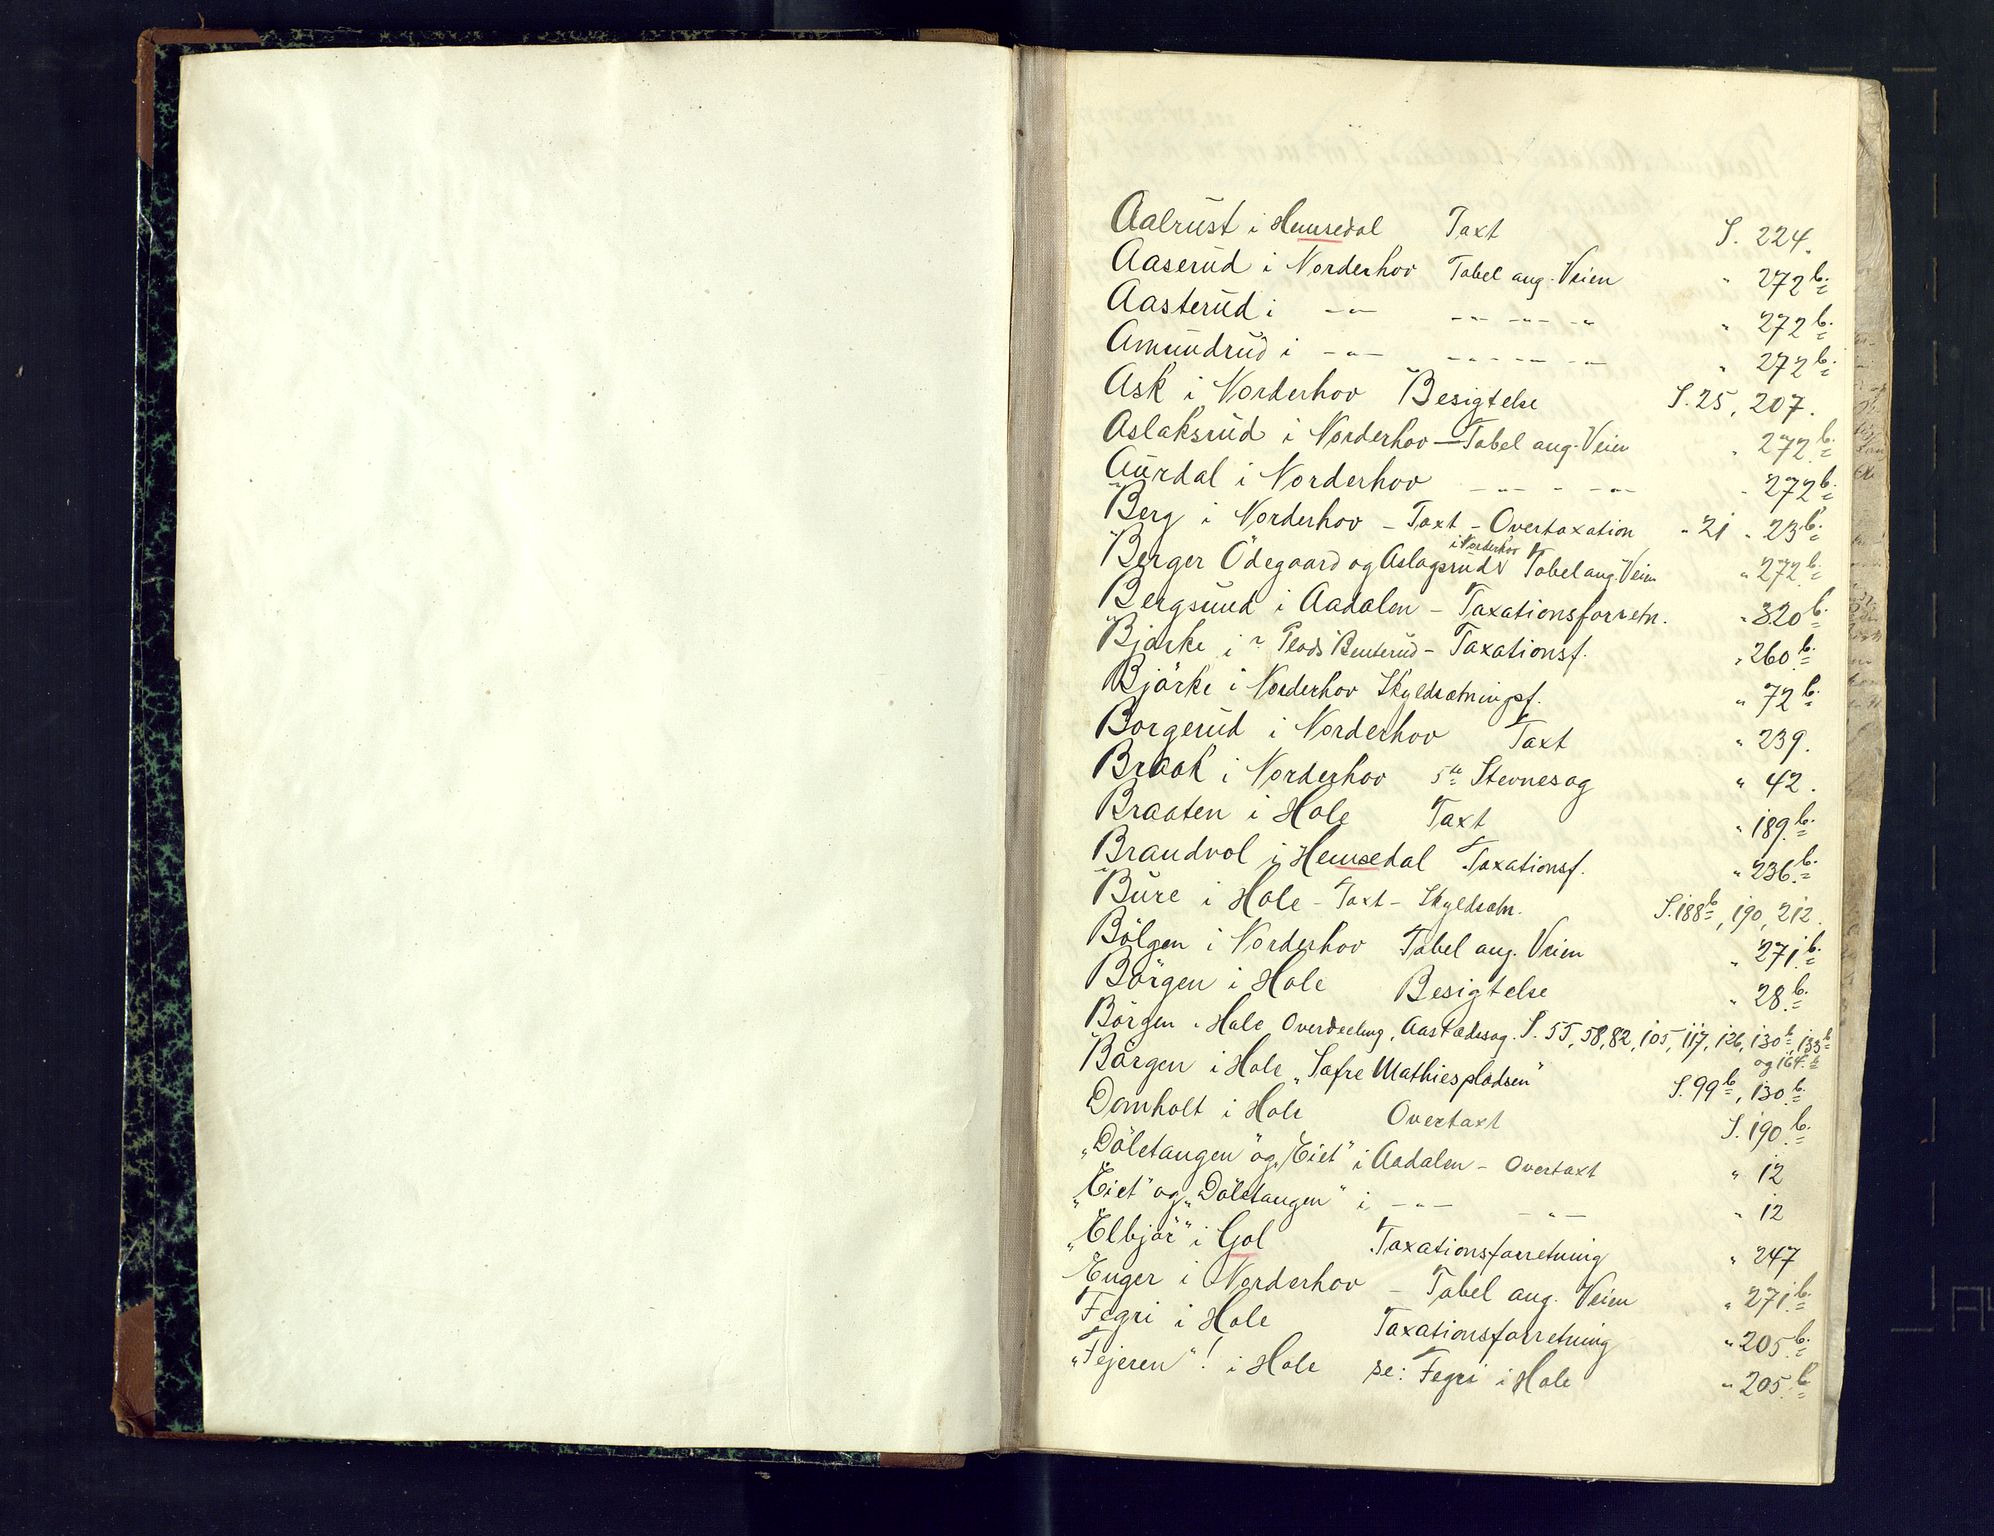 Aalrust i Hemsedal Taxt S. 224.
Aaserud i Norderhov Tabel ang. Veien " 272 b.
Aasterud i -"- -"- -"- -"- " 272 b.
Amundrud i -"- -"- -"- -"- " 272 b.
Ask i Norderhov Besigtelse S. 25, 207.
Aslaksrud i Norderhov — Tabel ang. Veien " 272 b.
Aurdal i Norderhov -"- -"- -"- " 272 b.
Berg i Norderhov - Taxt - Overtaxation " 21 " 23 b.
Berger Ödegaard og Aslagsrud i Norderhov Tabel ang. Veien " 272 b.
Bergsund i Aadalen - Taxationsforretn. " 320 b.
Bjärke i Plads Benterud - Taxationsf. " 260 b.
Bjärke i Norderhov Skyldsætningsf. " 72 b.
Borgerud i Norderhov Taxt " 239.
Braak i Norderhov 5te Stevnesag " 42.
Braaten i Hole Taxt " 189 b.
Brandvol i Hemsedal Taxationsf. " 236 b.
Bure i Hole - Taxt - Skyldsætn. S. 188 b, 190, 212.
Bölgen i Norderhov Tabel ang. Veien " 271 b.
Börgen i Hole Besigtelse " 28 b.
Börgen i Hole Overdeeling, Aastedssag. S. 55, 58, 82, 105, 117, 126, 130 b, 133 b
og 164 b
Börgen i Hole „Sætre Mathiespladsen" S. 99 b, 130 b.
Domholt i Hole Overtaxt S. 190 b.
„Döletangen" og „Eiet" i Aadalen - Overtaxt " 12
„Eiet" og „Döletangen" i -"- -"- " 12
„Elbjör" i Gol Taxationsforretning " 247
Enger i Norderhov - Tabel ang. Veien " 271 b.
Fegri i Hole Taxationsforretning " 205 b.
„Fejeren"! i Hole se: Fegri i Hole " 205 b.